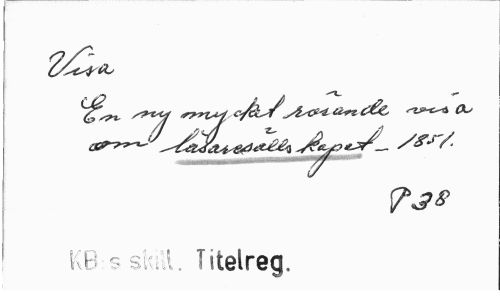 Visa
En ny myckt rörande visa
om läsaresällskapet - 1851.
P 38
KB:s skill. Titelreg.